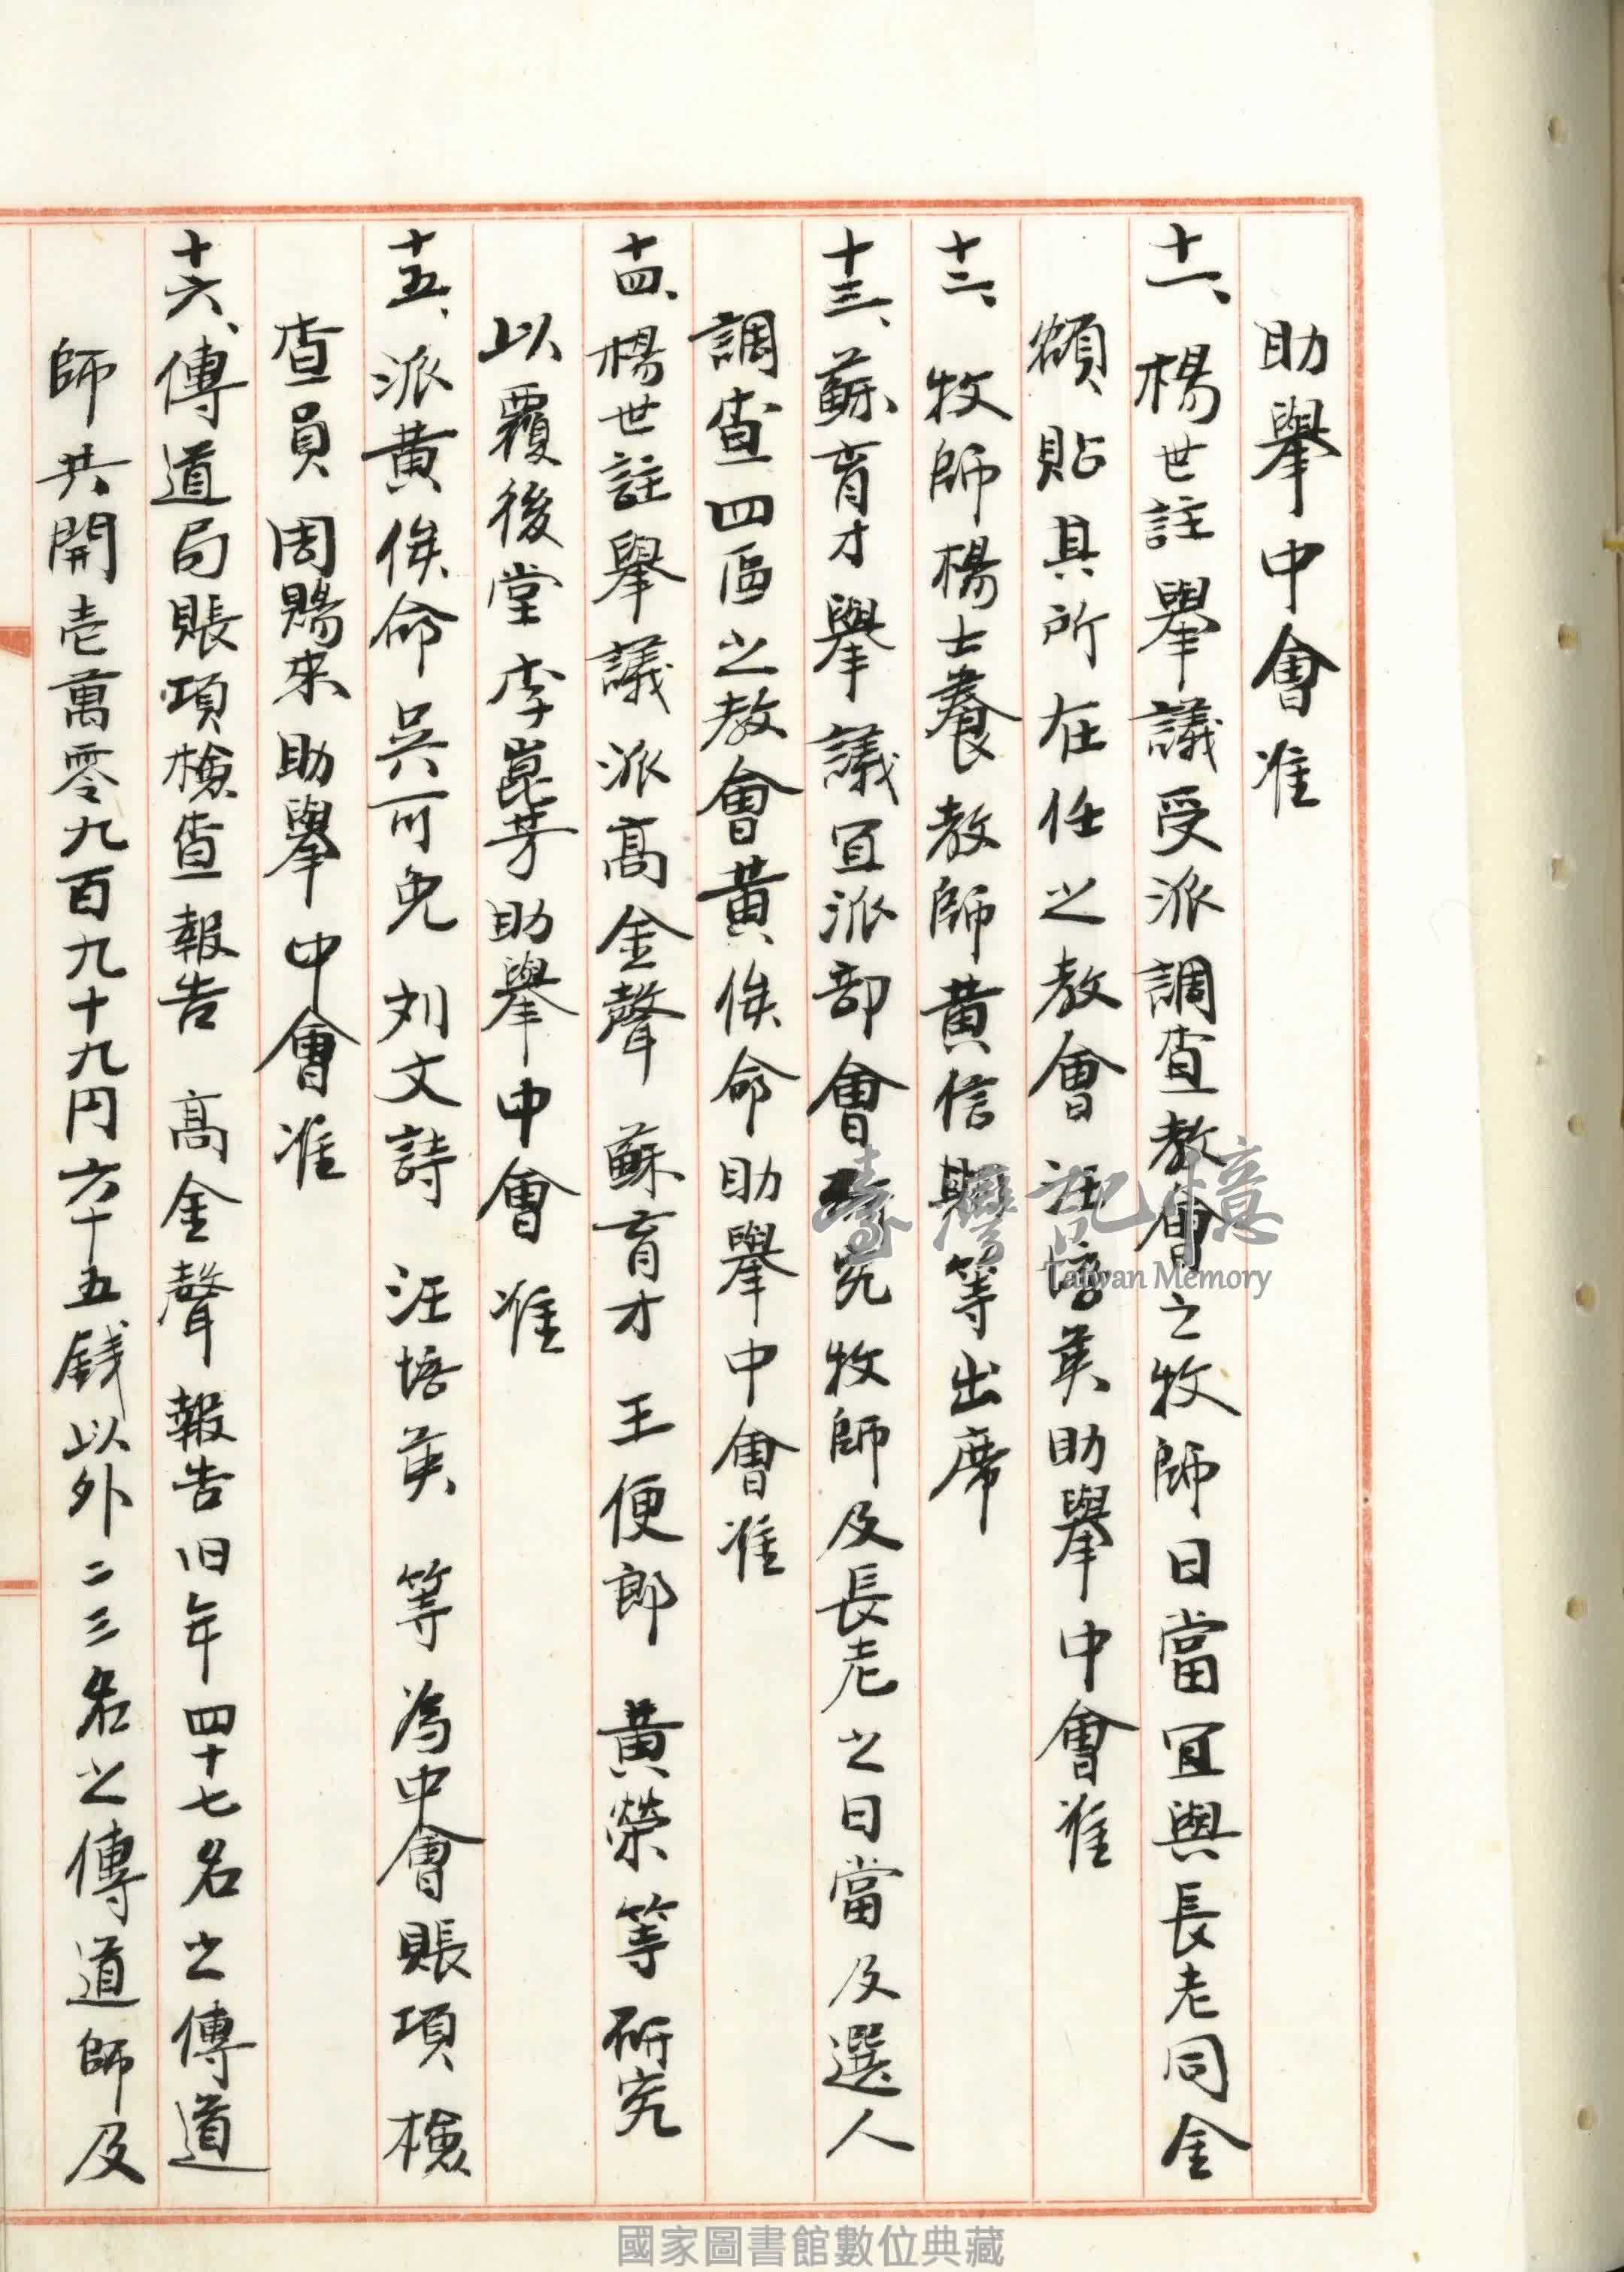 助舉中會准
十一、楊世註舉議受派調查教會之牧師日當宜與長老同金
額貼其所在任之教會 汪培英助舉中會准
十二、牧師楊士養 教師黃信期等出席
十三、蘇育才舉議宜派部會研究牧師及長老之日當及選人
調查四區之教會黃俟命助舉中會准
十四、楊世註舉議派高金聲 蘇育才 王便郎 黃榮等研究
以覆後堂 李崑芳助舉中會 准
十五、派黃俟命 吳可免 刘文詩 汪培英 等為中會賬項檢
查員 周賜來助舉中會准
十六、傳道局賬項檢查報告 高金聲報告旧年四十七名之傳道
師共開壱萬零九百九十九円六十五錢以外二三名之傳道師及
臺灣記憶
Taiwan Memory
國家圖書館數位典藏